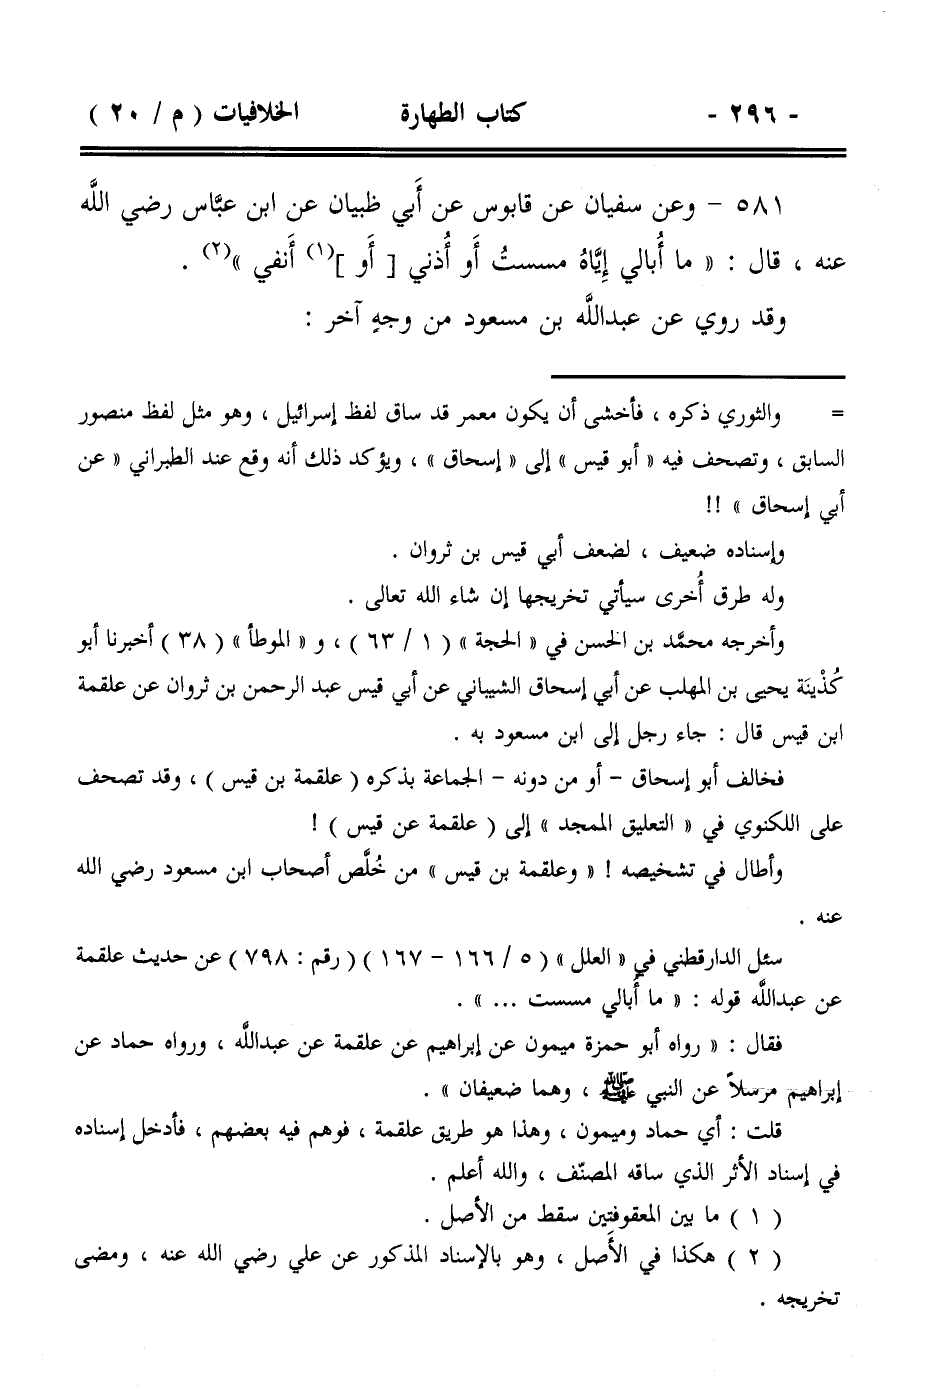 - ٢٩٦ - كتاب الطهارة الخلافيات ( م / ٢٠ )
٥٨١ - وعن سفيان عن قابوس عن أَبي ظبيان عن ابن عبَّاس رضي اللَّه
عنه ، قال : « ما أُبالي إِيَّاهُ مسستُ أَو أُذني [ أَو ](١) أَنفي »(٢) .
وقد روي عن عبداللَّه بن مسعود من وجهٍ آخر :
= والثوري ذكره ، فأخشى أن يكون معمر قد ساق لفظ إسرائيل ، وهو مثل لفظ منصور
السابق ، وتصحف فيه « أبو قيس » إلى « إسحاق » ، ويؤكد ذلك أنه وقع عند الطبراني « عن
أبي إسحاق » !!
وإسناده ضعيف ، لضعف أبي قيس بن ثروان .
وله طرق أُخرى سيأتي تخريجها إن شاء الله تعالى .
وأخرجه محمَّد بن الحسن في « الحجة » ( ١ / ٦٣ ) ، و « الموطأ » ( ٣٨ ) أخبرنا أبو
كُدْينَة يحيى بن المهلب عن أبي إسحاق الشيباني عن أبي قيس عبد الرحمن بن ثروان عن علقمة
ابن قيس قال : جاء رجل إلى ابن مسعود به .
فخالف أبو إسحاق - أو من دونه - الجماعة بذكره ( علقمة بن قيس ) ، وقد تصحف
على اللكنوي في « التعليق الممجد » إلى ( علقمة عن قيس ) !
وأطال في تشخيصه ! « وعلقمة بن قيس » من خُلَّص أصحاب ابن مسعود رضي الله
عنه .
سئل الدارقطني في « العلل » ( ٥ / ١٦٦ - ١٦٧ ) ( رقم : ٧٩٨ ) عن حديث علقمة
عن عبداللَّه قوله : « ما أُبالي مسست ... » .
فقال : « رواه أبو حمزة ميمون عن إبراهيم عن علقمة عن عبداللَّه ، ورواه حماد عن
إبراهيم مرسلاً عن النبي ﷺ ، وهما ضعيفان » .
قلت : أي حماد وميمون ، وهذا هو طريق علقمة ، فوهم فيه بعضهم ، فأدخل إسناده
في إسناد الأثر الذي ساقه المصنّف ، والله أعلم .
( ١ ) ما بين المعقوفتين سقط من الأصل .
( ٢ ) هكذا في الأَصل ، وهو بالإسناد المذكور عن علي رضي الله عنه ، ومضى
تخريجه .